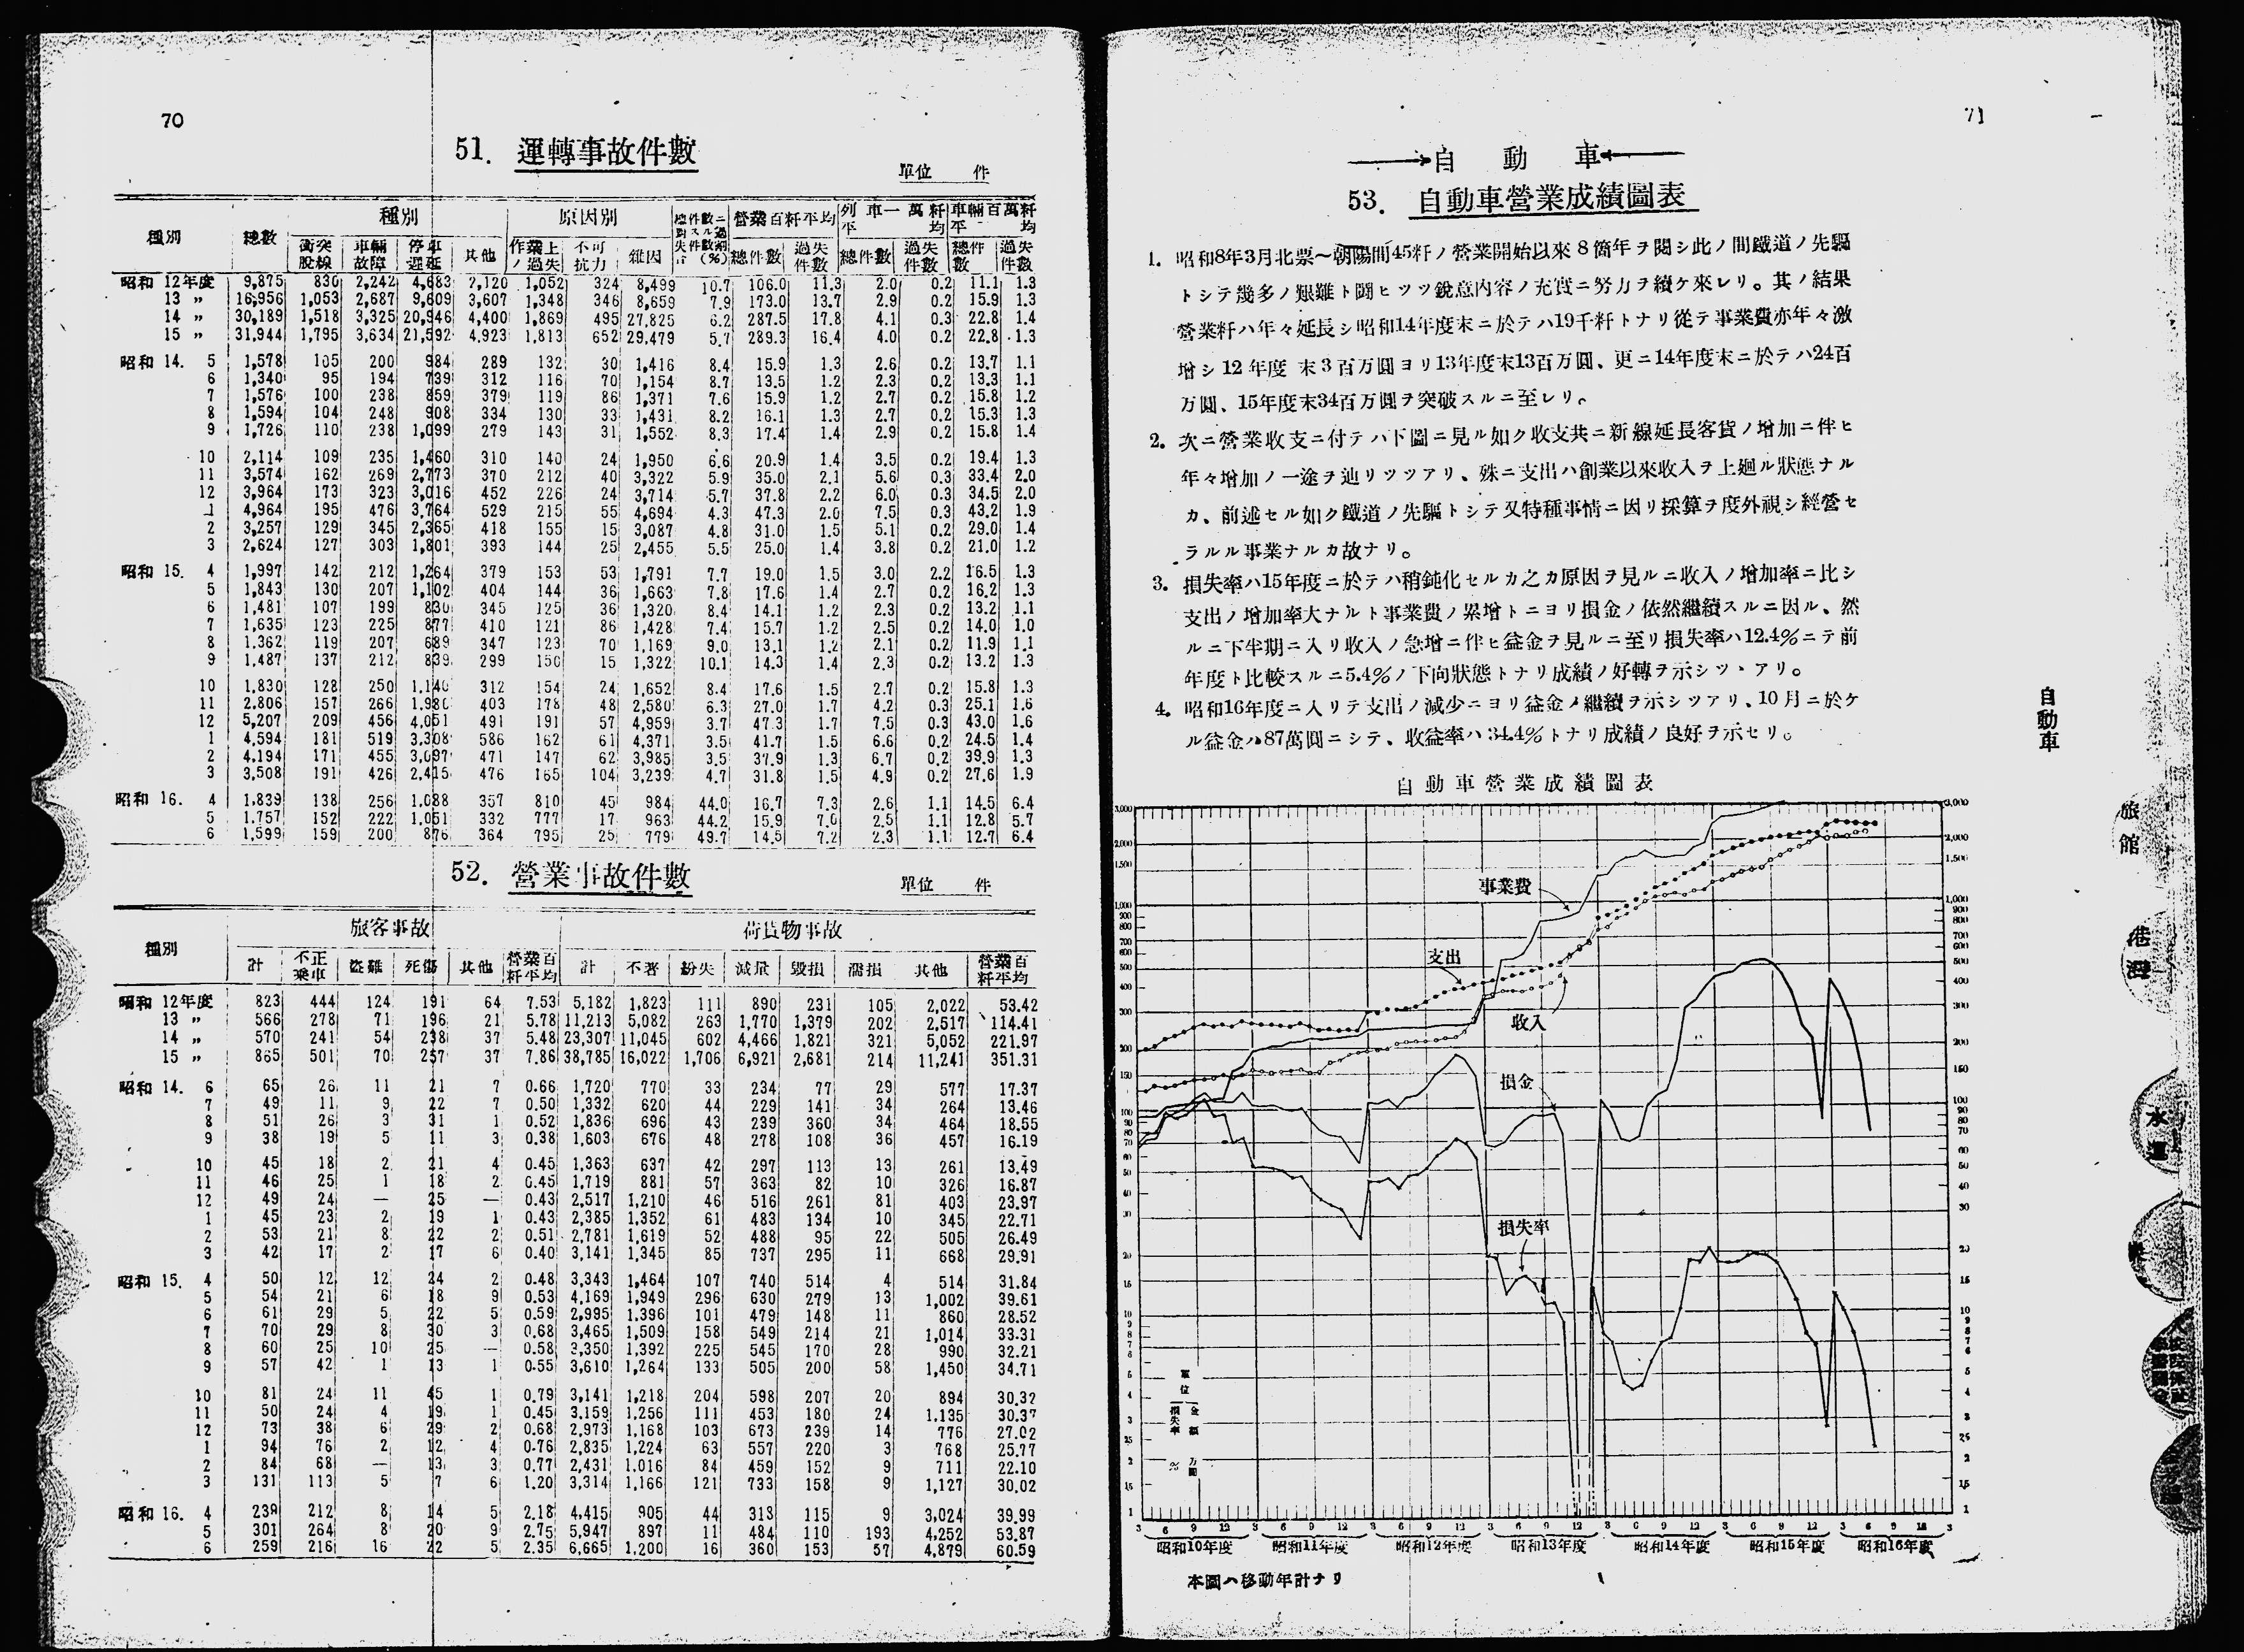 70
51. 運轉事故件數
單位 件
種別 總數 種別 原因別 總件數ニ對スル過失件數割合(%) 營業百粁平均 列車一萬粁平均 車輛百萬粁平均
衝突脫線 車輛故障 停車遲延 其他 作業上ノ過失 不可抗力 雜因 總件數 過失件數 總件數 過失件數 總件數 過失件數
昭和 12年度 9,875 830 2,242 4,683 2,120 1,052 324 8,499 10.7 106.0 11.3 2.0 0.2 11.1 1.3
13 〃 16,956 1,053 2,687 9,609 3,607 1,348 346 8,659 7.9 173.0 13.7 2.9 0.2 15.9 1.3
14 〃 30,189 1,518 3,325 20,946 4,400 1,869 495 27,825 6.2 287.5 17.8 4.1 0.3 22.8 1.4
15 〃 31,944 1,795 3,634 21,592 4,923 1,813 652 29,479 5.7 289.3 16.4 4.0 0.2 22.8 1.3
昭和 14. 5 1,578 105 200 984 289 132 30 1,416 8.4 15.9 1.3 2.6 0.2 13.7 1.1
6 1,340 95 194 739 312 116 70 1,154 8.7 13.5 1.2 2.3 0.2 13.3 1.1
7 1,576 100 238 859 379 119 86 1,371 7.6 15.9 1.2 2.7 0.2 15.8 1.2
8 1,594 104 248 908 334 130 33 1,431 8.2 16.1 1.3 2.7 0.2 15.3 1.3
9 1,726 110 238 1,099 279 143 31 1,552 8.3 17.4 1.4 2.9 0.2 15.8 1.4
10 2,114 109 235 1,460 310 140 24 1,950 6.6 20.9 1.4 3.5 0.2 19.4 1.3
11 3,574 162 269 2,773 370 212 40 3,322 5.9 35.0 2.1 5.6 0.3 33.4 2.0
12 3,964 173 323 3,016 452 226 24 3,714 5.7 37.8 2.2 6.0 0.3 34.5 2.0
1 4,964 195 476 3,764 529 215 55 4,694 4.3 47.3 2.0 7.5 0.3 43.2 1.9
2 3,257 129 345 2,365 418 155 15 3,087 4.8 31.0 1.5 5.1 0.2 29.0 1.4
3 2,624 127 303 1,801 393 144 25 2,455 5.5 25.0 1.4 3.8 0.2 21.0 1.2
昭和 15. 4 1,997 142 212 1,264 379 153 53 1,791 7.7 19.0 1.5 3.0 2.2 16.5 1.3
5 1,843 130 207 1,102 404 144 36 1,663 7.8 17.6 1.4 2.7 0.2 16.2 1.3
6 1,481 107 199 830 345 125 36 1,320 8.4 14.1 1.2 2.3 0.2 13.2 1.1
7 1,635 123 225 877 410 121 86 1,428 7.4 15.7 1.2 2.5 0.2 14.0 1.0
8 1,362 119 207 689 347 123 70 1,169 9.0 13.1 1.2 2.1 0.2 11.9 1.1
9 1,487 137 212 839 299 150 15 1,322 10.1 14.3 1.4 2.3 0.2 13.2 1.3
10 1,830 128 250 1,140 312 154 24 1,652 8.4 17.6 1.5 2.7 0.2 15.8 1.3
11 2,806 157 266 1,980 403 178 48 2,580 6.3 27.0 1.7 4.2 0.3 25.1 1.6
12 5,207 209 456 4,051 491 191 57 4,959 3.7 47.3 1.7 7.5 0.3 43.0 1.6
1 4,594 181 519 3,308 586 162 61 4,371 3.5 41.7 1.5 6.6 0.2 24.5 1.4
2 4,194 171 455 3,097 471 147 62 3,985 3.5 37.9 1.3 6.7 0.2 39.9 1.3
3 3,508 191 426 2,415 476 165 104 3,239 4.7 31.8 1.5 4.9 0.2 27.6 1.9
昭和 16. 4 1,839 138 256 1,088 357 810 45 984 44.0 16.7 7.3 2.6 1.1 14.5 6.4
5 1,757 152 222 1,051 332 777 17 963 44.2 15.9 7.0 2.5 1.1 12.8 5.7
6 1,599 159 200 876 364 795 25 779 49.7 14.5 7.2 2.3 1.1 12.7 6.4
52. 營業事故件數
單位 件
種別 旅客事故 荷貨物事故
計 不正乘車 盜難 死傷 其他 營業百粁平均 計 不著 紛失 減量 毀損 濡損 其他 營業百粁平均
昭和 12年度 823 444 124 191 64 7.53 5,182 1,823 111 890 231 105 2,022 53.42
13 〃 566 278 71 196 21 5.78 11,213 5,082 263 1,770 1,379 202 2,517 114.41
14 〃 570 241 54 238 37 5.48 23,307 11,045 602 4,466 1,821 321 5,052 221.97
15 〃 865 501 70 257 37 7.86 38,785 16,022 1,706 6,921 2,681 214 11,241 351.31
昭和 14. 6 65 26 11 21 7 0.66 1,720 770 33 234 77 29 577 17.37
7 49 11 9 22 7 0.50 1,332 620 44 229 141 34 264 13.46
8 51 26 3 31 1 0.52 1,836 696 43 239 360 34 464 18.55
9 38 19 5 11 3 0.38 1,603 676 48 278 108 36 457 16.19
10 45 18 2 21 4 0.45 1,363 637 42 297 113 13 261 13.49
11 46 25 1 18 2 0.45 1,719 881 57 363 82 10 326 16.87
12 49 24 — 25 — 0.43 2,517 1,210 46 516 261 81 403 23.97
1 45 23 2 19 1 0.43 2,385 1,352 61 483 134 10 345 22.71
2 53 21 8 22 2 0.51 2,781 1,619 52 488 95 22 505 26.49
3 42 17 2 17 6 0.40 3,141 1,345 85 737 295 11 668 29.91
昭和 15. 4 50 12 12 24 2 0.48 3,343 1,464 107 740 514 4 514 31.84
5 54 21 6 18 9 0.53 4,169 1,949 296 630 279 13 1,002 39.61
6 61 29 5 22 5 0.59 2,995 1,396 101 479 148 11 860 28.52
7 70 29 8 30 3 0.68 3,465 1,509 158 549 214 21 1,014 33.31
8 60 25 10 25 — 0.58 3,350 1,392 225 545 170 28 990 32.21
9 57 42 1 13 1 0.55 3,610 1,264 133 505 200 58 1,450 34.71
10 81 24 11 45 1 0.79 3,141 1,218 204 598 207 20 894 30.32
11 50 24 4 19 1 0.45 3,159 1,256 111 453 180 24 1,135 30.37
12 73 38 6 29 2 0.68 2,973 1,168 103 673 239 14 776 27.02
1 94 76 2 12 4 0.76 2,835 1,224 63 557 220 3 768 25.77
2 84 68 — 13 3 0.77 2,431 1,016 84 459 152 9 711 22.10
3 131 113 5 7 6 1.20 3,314 1,166 121 733 158 9 1,127 30.02
昭和 16. 4 239 212 8 14 5 2.18 4,415 905 44 313 115 9 3,024 39.99
5 301 264 8 20 9 2.75 5,947 897 11 484 110 193 4,252 53.87
6 259 216 16 22 5 2.35 6,665 1,200 16 360 153 57 4,879 60.59
71
自動車
53. 自動車營業成績圖表
1. 昭和8年3月北票〜朝陽間45粁ノ營業開始以來8箇年ヲ閱シ此ノ間鐵道ノ先驅
トシテ幾多ノ艱難ト鬪ヒツツ銳意內容ノ充實ニ努力ヲ續ケ來レリ。其ノ結果
營業粁ハ年々延長シ昭和14年度末ニ於テハ19千粁トナリ從テ事業費亦年々激
增シ12年度 末3百万圓ヨリ13年度末13百万圓、更ニ14年度末ニ於テハ24百
万圓、15年度末34百万圓ヲ突破スルニ至レリ。
2. 次ニ營業收支ニ付テハ下圖ニ見ル如ク收支共ニ新線延長客貨ノ增加ニ伴ヒ
年々增加ノ一途ヲ辿リツツアリ、殊ニ支出ハ創業以來收入ヲ上廻ル狀態ナル
カ、前述セル如ク鐵道ノ先驅トシテ又特種事情ニ因リ採算ヲ度外視シ經營セ
ラルル事業ナルカ故ナリ。
3. 損失率ハ15年度ニ於テハ稍鈍化セルカ之カ原因ヲ見ルニ收入ノ增加率ニ比シ
支出ノ增加率大ナルト事業費ノ累增トニヨリ損金ノ依然繼續スルニ因ル、然
ルニ下半期ニ入リ收入ノ急增ニ伴ヒ益金ヲ見ルニ至リ損失率ハ12.4%ニテ前
年度ト比較スルニ5.4%ノ下向狀態トナリ成績ノ好轉ヲ示シツヽアリ。
4. 昭和16年度ニ入リテ支出ノ減少ニヨリ益金ノ繼續ヲ示シツアリ、10月ニ於ケ
ル益金ハ87萬圓ニシテ、收益率ハ34.4%トナリ成績ノ良好ヲ示セリ。
自動車營業成績圖表
3,000 3,000
2,000 2,000
1,500 1,500
1,000 1,000
900 900
800 800
700 700
600 600
500 500
400 400
300 300
200 200
150 150
100 100
90 90
80 80
70 70
60 60
50 50
40 40
30 30
20 20
15 15
10 10
9 9
8 8
7 7
6 6
5 5
4 4
3 3
2.5 2.5
2 2
1.5 1.5
1 1
事業費
支出
收入
損金
損失率
單位
損失率 金額
% 万圓
3 6 9 12 3 6 9 12 3 6 9 12 3 6 9 12 3 6 9 12 3 6 9 12 3 6 9 12 3
昭和10年度 昭和11年度 昭和12年度 昭和13年度 昭和14年度 昭和15年度 昭和16年度
本圖ハ移動年計ナリ
自動車
旅館
港灣
水運